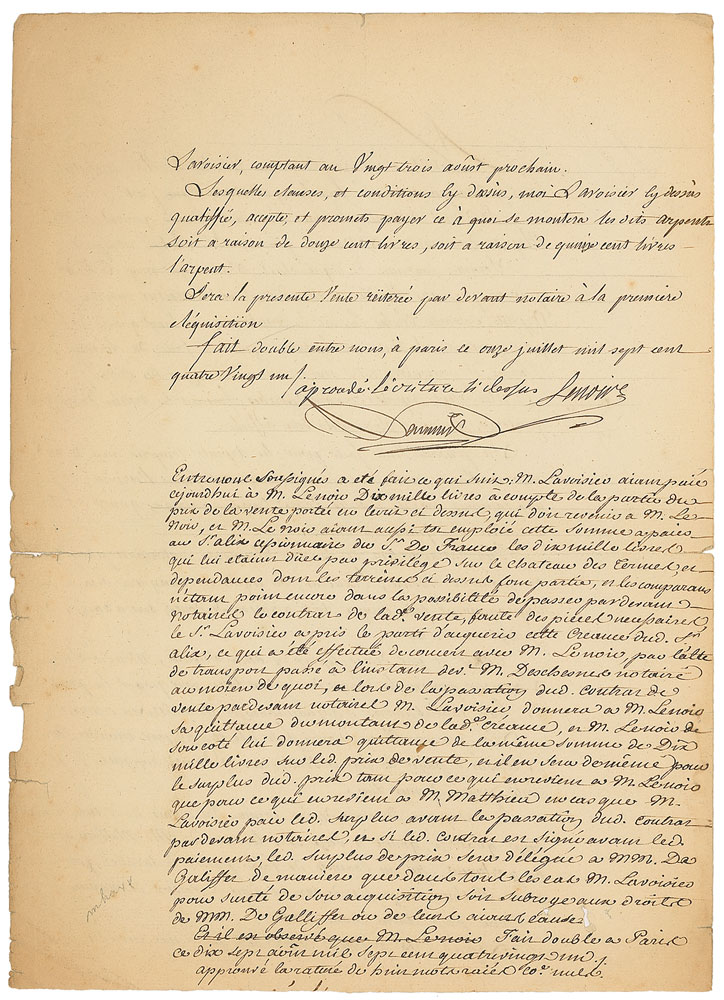 Lavoisier, comptant au Vingt trois aoûst prochain.
Lesquelles clauses, et conditions cy dessûs, moi Lavoisier cy dessûs
qualiffié, accepte, et promets payer ce à quoi se montera les dits arpents
soit a raison de douze cent livres, soit a raison de quinze cent livres
l'arpent.
Sera la presente Vente réiterée par devant notaire à la premiere
Réquisition
fait double entre nous, à paris ce onze juillet mil sept cent
quatre Vingt un /.
aprouvé l'écriture ci dessus Lenoir
Entre nous soussignés a été fait ce qui suit; M. Lavoisier aiant paié
cejourdhui à M. Lenoir Dix mille livres à compte de la partie du
prix de la vente portée en l'ecrit ci dessus, qui doit revenir a M. Le
Noir, et M. Le noir aiant aussitôt emploié cette somme a paier
au Sr. alix cessionnaire du Sr. De France les dix mille livres
qui lui etaient dües par privilége sur le chateau des Cernes et
dependances dont les terreins ci dessus font partie, et les comparans
n'étant point encore dans la possibilité de passer par devant
Notaires le contrat de lade. vente, faute des pieces necessaires
le Sr. Lavoisier a pris le parti d'acquerir cette Creance dud. Sr.
alix, ce qui a été effectué de concert avec M. Lenoir par l'acte
de transport passé à l'instant devt. M. Deschesnes notaire
au moien de quoi, et lors de la passation dud. contrat de
vente par devant notaires M. Lavoisier donnera a M. Lenoir
sa quittance du montant de lade. Créance, et M. Lenoir de
son coté lui donnera quittance de la même somme de Dix
mille livres sur led. prix de vente, et il en sera de même pour
le surplus dud. prix tant pour ce qui en revient a M. Lenoir
que pour ce qui en revient a M. Matthieu en cas que M.
Lavoisier paie led. surplus avant la passation dud. Contrat
par devant notaires, et si led. Contrat est signé avant led.
paiement, led. surplus de prix sera délégué a MM. De
Galiffet de maniere que dans tous les cas M. Lavoisier
pour sureté de son acquisition soit subrogé aux droits
de MM. De Galliffet ou de leurs aiant cause
Et il est observé que M. Lenoir Fait double a Paris
ce dix sept août mil sept cent quatrevingt un /.
approuvé la rature de huit mots raiés comme nuls.